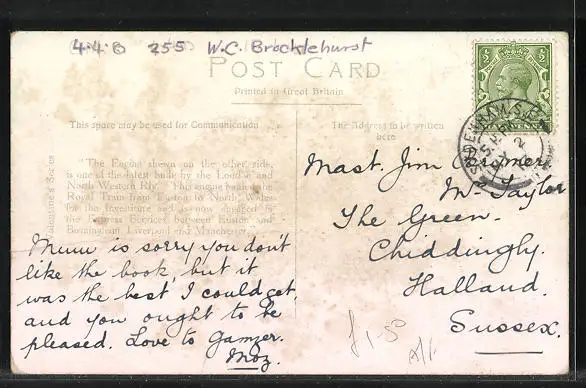 4·4·0 255 W.C. Brocklehurst
POST CARD
Printed in Great Britain
This space may be used for Communication
The Address to be written
here
"The Engine shewn on the other side,
is one of the latest built by the London and
North Western Rly. This engine hauled the
Royal Train from Euston to North Wales
for the Investiture and is now engaged in
the Express Services between Euston and
Birmingham, Liverpool and Manchester."
Valentine's Series
Mum is sorry you don't
like the book, but it
was the best I could get,
and you ought to be
pleased. Love to
Moz.
Mast. Jim
Mr Taylor
The Green.
Chiddingly.
Halland.
Sussex.
SYDENHAM, S.E.
£1-50